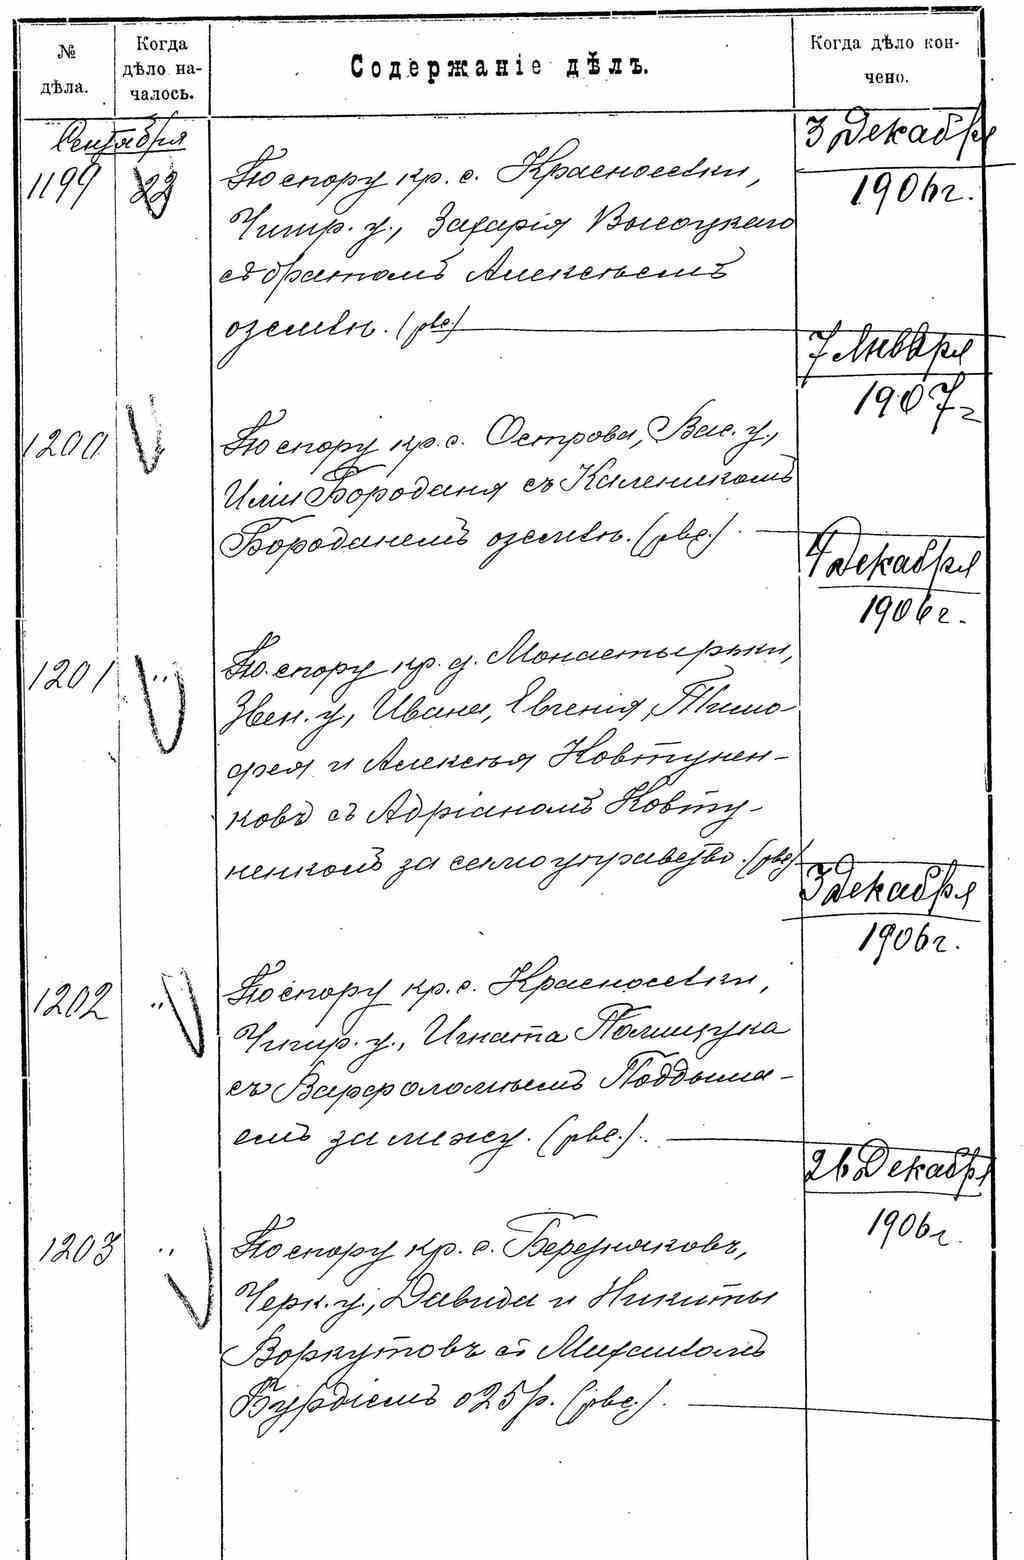 № дѣла.
Когда дѣло на-
чалось.
Содержаніе дѣлъ.
Когда дѣло кон-
чено.
Сентября
3 Декабря
1906 г.
1199 22 По спору кр. с. Красноселки,
Чигир. у., Захарія Высоцкаго
съ братомъ Алексѣемъ
о землѣ.
7 Января
1907 г
1200 По спору кр. с. Острова, Вас. у.,
Или Бороданя съ Каленикомъ
Бороданемъ о землѣ.
4 Декабря
1906 г.
1201 " По спору кр. д. Монастырьки,
Звен. у., Ивана, Евгенія, Тимо-
фея и Алексѣя Ковтунен-
ковъ съ Адріаномъ Ковту-
ненкомъ за самоуправство.
3 Декабря
1906 г.
1202 " По спору кр. с. Красноселки,
Чигир. у., Игната Полищука
съ Варфоломѣемъ Поддыма-
емъ за межу.
26 Декабря
1906 г.
1203 " По спору кр. с. Березняковъ,
Черк. у., Давида и Никиты
Воркутовъ съ Михаиломъ
Бурдіемъ о 25 р.